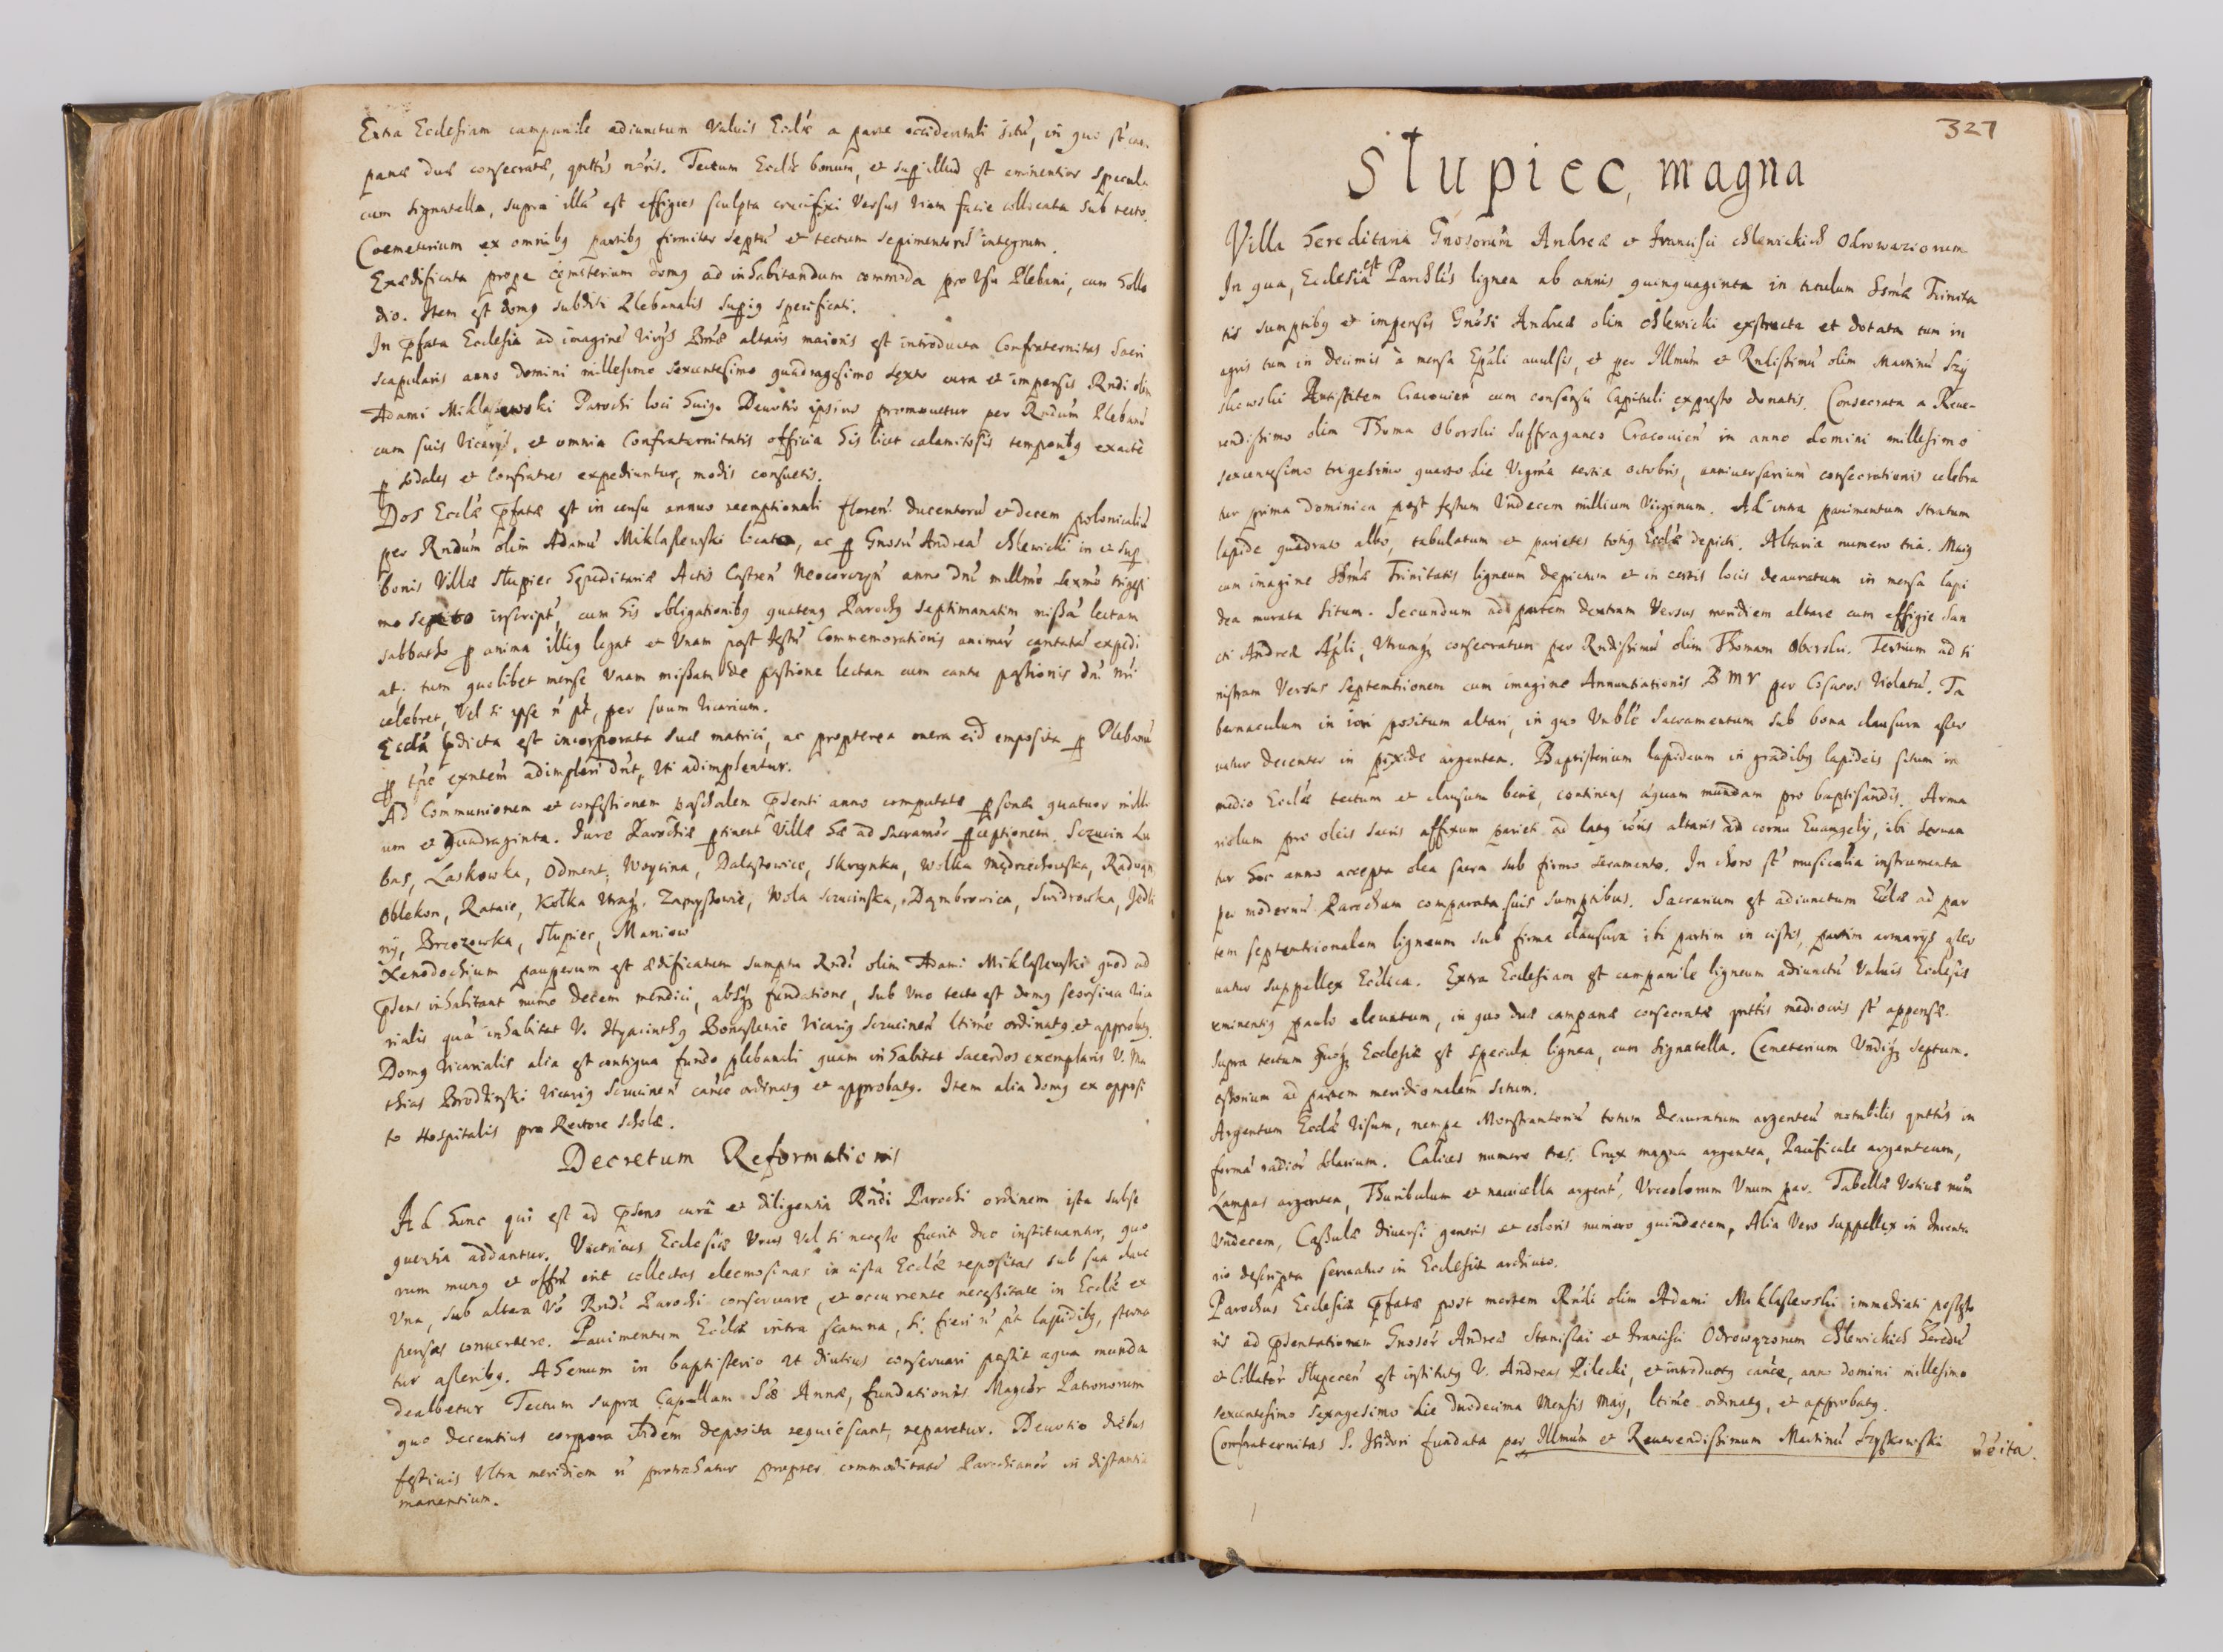 Extra Ecclesiam campanile adiunctum Valuis Eccłæ a parte occidentali sitũ, in quo st̃ cam
panæ duæ consecratæ, qntt̃is n̄ris. Tectum Eccłæ bonum, et sup illud est eminentior specula
cum signatella, supra illã est effigies sculpta crucifixi Versus viam facie collocata sub tecto.
Coemeterium ex omnibꝯ partibꝯ firmiter septũ et tectum sepimentorũ integrum.
Exædificata prope cęmiterium domꝯ ad inhabitandum commoda pro Vsu Plebani, cum hollo
dio. Item est domꝯ subditi Plebanalis supiꝯ specificati.
In p̄fata Ecclesia ad imaginẽ Virgis Bm̃æ altaris maioris est introducta Confraternitas Sacri
Scapularis anno Domini millesimo sexcentesimo quadragesimo sexto cura et impensis Rndi olim
Adami Miklaszewski Parochi loci huiꝯ. Deuotio ipsius promouetur per Rndum Plebanũ
cum suis Vicarys, et omnia Confraternitatis officia his licet calamitosis temporibꝯ exacte
ꝑ sodales et confratres expediuntur, modis consuetis.
Dos Eccłæ p̄fatæ est in censu annuo reemptionali floren̄ ducentorũ et decem polonicaliũ
per Rndum olim Adamũ Miklaszewski locata, ac ꝑ Gnosũ Andreã Chlewicki in et sup
bonis Villæ Słupiec hæreditariæ Actis Castren̄ Neocorczyn̄ anno Dn̄i millm̃o sexm̃o trigesi
mo sexto inscript̃, cum his obligationibꝯ quatenꝯ Parochꝯ septimanatim missã lectam
sabbatho ꝓ anima illiꝯ legat et Vnam post festũ Commemorationis animar̃ cantatã expedi
at. tum quolibet mense Vnam missam de passione lectam cum cantu passionis Dn̄i nr̄i
celebret, Vel si ipse n̄ pt̃, per suum Vicarium.
Eccłã p̄dicta est incorporata suæ matrici, ac propterea onera eid̃ imposita ꝑ Plebanũ
adimpleri dnt̃, Vti adimplentur.
Ad Communionem et confessionem paschalem p̄senti anno computatæ ꝑsonæ quatuor mille
um et quadraginta. Iure Parochiæ ꝑtinent Villæ hæ ad sacramẽr ꝑceptionem. Sczucin Lu
bas, Laskowka, Odment, Woycina, Dalęstowice, Skrzynka, Wolka Mędrzechowska, Radwan
Oblekon, Rataie, Kołka Vtraqꝫ. Zamystowie, Wola Sczucinska, Dąmbrowica, Swidrowka, Jedli
ny, Brzozowka, Słupiec, Maniow
Xenodochium pauperum est ædificatum sumptu Rndi olim Adami Miklaszewski quod ad
p̄sens inhabitant num̃o decem mendici, absqꝫ fundatione, sub Vno tecto est domꝯ seorsiua Vica
rialis quã inhabitat V. Hyacinthꝯ Vicariꝯ Sczucinen̄ ltime ordinatꝯ et approbatꝯ.
Domꝯ Vicarialis alia est contigua fundo plebanali quam inhabitat sacerdos exemplaris V. Ma
thias Brodzinski Vicariꝯ Sczucinen̄ canc̃e ordinatꝯ et approbatꝯ. Item alia domꝯ ex opposi
to Hospitalis pro Rectore Scholæ.
Decretum Reformationis
Ad hunc qui est ad p̄sens curâ et diligentia Rndi Parochi ordinem ista subse
quentia addantur. Vitricus Ecclesiæ Vnus Vel si necesse fuerit duo instituantur, quo
rum munꝯ et offm̃ erit collectas eleemosinas in cista Eccłæ repositas sub sua claue
Vna, sub altera Vo Rndi Parochi conseruare, et occurrente necessitate in Eccłæ ex
pensas conuertere. Pauimentum Eccłæ intra scamna, si fieri n̄ pt̃ lapidibꝯ, sterna
tur asseribꝯ. Ahenum in baptisterio Vt diutius conseruari possit aqua munda
dealbetur Tectum supra Capellam Sæ Annæ, fundationis Magcor̃ Patronorum
quo decentius corpora ibidem deposita requiescant, reparetur. Deuotio diebus
festiuis Vltra meridiem n̄ protrahatur propter commoditatẽ Parochianor̃ in distantia
manentium.
327
Słupiec, magna
Villa hereditaria Gnosorũm Andreæ et Francisci Chlewickich Odrowaziorum
In qua, Ecclesia est Parchłis lignea ab annis quinquaginta in titulum SSmæ Trinita
tis sumptibꝯ et impensis Gnosi Andreæ olim Chlewicki exstructa et dotata tum in
agris tum in decimis à mensa Epali auulsis, et per Illmũm et Rndissimũ olim Martinũ Szy
skowski Antistitem Cracouien̄ cum consensu Capituli expresso donatis. Consecrata a Reue-
rendissimo olim Thoma Oborski Suffraganeo Cracouien̄ in anno Domini millesimo
sexcentesimo trigesimo quarto die Vigma tertia octobris, anniuersarium consecrationis celebra
tur prima Dominica post festum Vndecem millium Virginum. Ad intra pauimentum stratum
lapide quadrato albo, tabulatum et parietes totiꝯ Eccłæ depicti. Altaria numero tria. Maiꝯ
cum imagine SSmæ Trinitatis ligneum depictum et in certis locis deauratum in mensa lapi
dea murata situm. Secundum ad partem dextram Versus meridiem altare cum effigie San
cti Andreæ Apli, Vtrumqꝫ consecratum per Rndissimũ olim Thomam Oborski. Tertium ad si
nistram Versus Septemtrionem cum imagine Annuntiationis B M V per Cosacos Violatũ. Ta
bernaculum in iori positum altari, in quo Vnblẽ Sacramentum sub bona clausura asser
uatur decenter in pixide argentea. Baptisterium lapideum in gradibꝯ lapideis situm in
medio Eccłæ tectum et clausum bene, continens aquam mundam pro baptisandis. Arma
riolum pro oleis sacris affixum parieti ad latꝯ ioris altaris ad cornu Euangelij, ibi seruan
tur hoc anno accepta olea sacra sub firmo seramento. In choro st̃ musicalia instrumenta
per modernũ Parochum comparata suis sumptibus. Sacrarium est adiunctum Eccłæ ad par
tem septemtrionalem ligneum sub firma clausura ibi partim in cistis, partim armarys asser
uatur suppellex Ecclica. Extra Ecclesiam est campanile ligneum adiunctũ Valuis Ecclesiæ
eminentiꝯ paulo eleuatum, in quo duæ campanæ consecratæ qntt̃is mediocris st̃ appensæ.
Supra tectum huiqꝫ Ecclesiæ est specula lignea, cum signatella. Cemeterium Vndiqꝫ septum.
ossorium ad partem meridionalem situm.
Argentum Eccłæ Visum, nempe Monstrantoriũ totum deauratum argenteũ notabilis qntt̃is in
formã radior̃ solarium. Calices numero tres. Crux magna argentea, Pacificale argenteum,
Lampas argentea, Thuribulum et nauicella argent̃, Vrceolorum Vnum par. Tabellæ Votiuæ num̃
Vndecem, Casulæ diuersi generis et coloris numero quindecem, Alia Vero suppellex in Inuenta
rio descripta seruatur in Ecclesiæ archiuo.
Parochus Ecclesiæ p̄fatæ post mortem Rndi olim Adami Miklaszewski immediati possesso
ris ad p̄sentationem Gnosor̃ Andreæ Stanislai et Francisci Odrowązorum Chlewickich heredũ
et Collator̃ Słupecen̄ est institutꝯ V. Andreas Pilecki, et introductꝯ canc̃e, anno Domini millesimo
sexcentesimo sexagesimo die duodecima Mensis May, ltime ordinatꝯ, et approbatꝯ.
Confraternitas S. Isidori fundata per Illmũm et Reuerendissimum Martinũ Szyszkowski